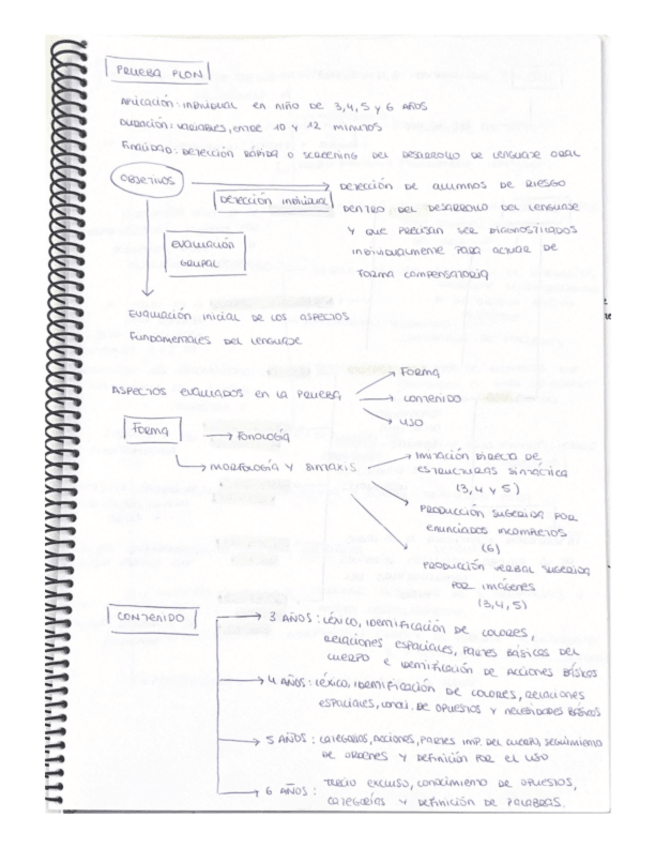 PRUEBA PLON
Aplicación: individual en niño de 3,4,5 y 6 años
Duración: variables, entre 10 y 12 minutos
Finalidad: detección rápida o screening del desarrollo de lenguaje oral
OBJETIVOS
Detección individual
detección de alumnos de riesgo
dentro del desarrollo del lenguaje
y que precisan ser diagnosticados
individualmente para actuar de
forma compensatoria
Evaluación
grupal
Evaluación inicial de los aspectos
fundamentales del lenguaje
Aspectos evaluados en la prueba
Forma
contenido
uso
Forma
Fonología
morfología y sintaxis
Imitación directa de
estructuras sintáctica
(3,4 y 5)
Producción sugerida por
enunciados incompletos
(6)
Producción verbal sugerida
por imágenes
(3,4,5)
CONTENIDO
3 años: Léxico, identificación de colores,
relaciones espaciales, partes básicas del
cuerpo e identificación de acciones básicas
4 años: léxico, identificación de colores, relaciones
espaciales, conoci. de opuestos y necesidades básicas
5 años: categorías, acciones, partes imp. del cuerpo, seguimiento
de órdenes y definición por el uso
6 años: tercio excluso, conocimiento de opuestos,
categorías y definición de palabras.